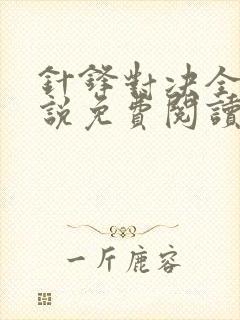 針鋒對決全
說免費閱讀
一斤鹿容